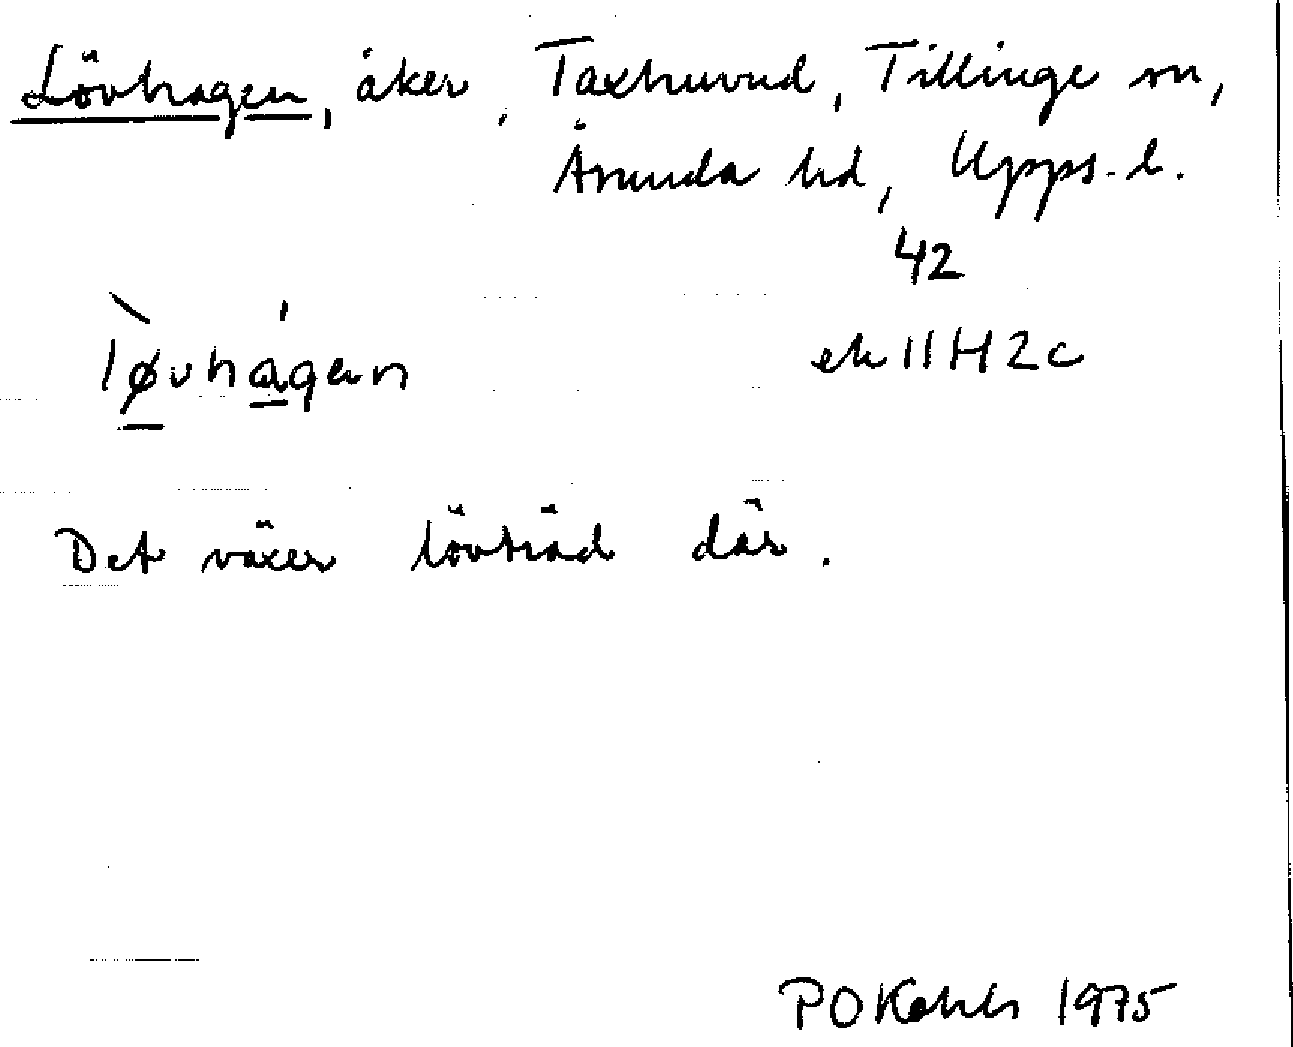 Lövhagen, åker, Taxhuvud, Tillinge sn,
Åsunda hd, Upps. l.
42
løvhagen ek 11H2c
Det växer lövträd där.
PO 1975